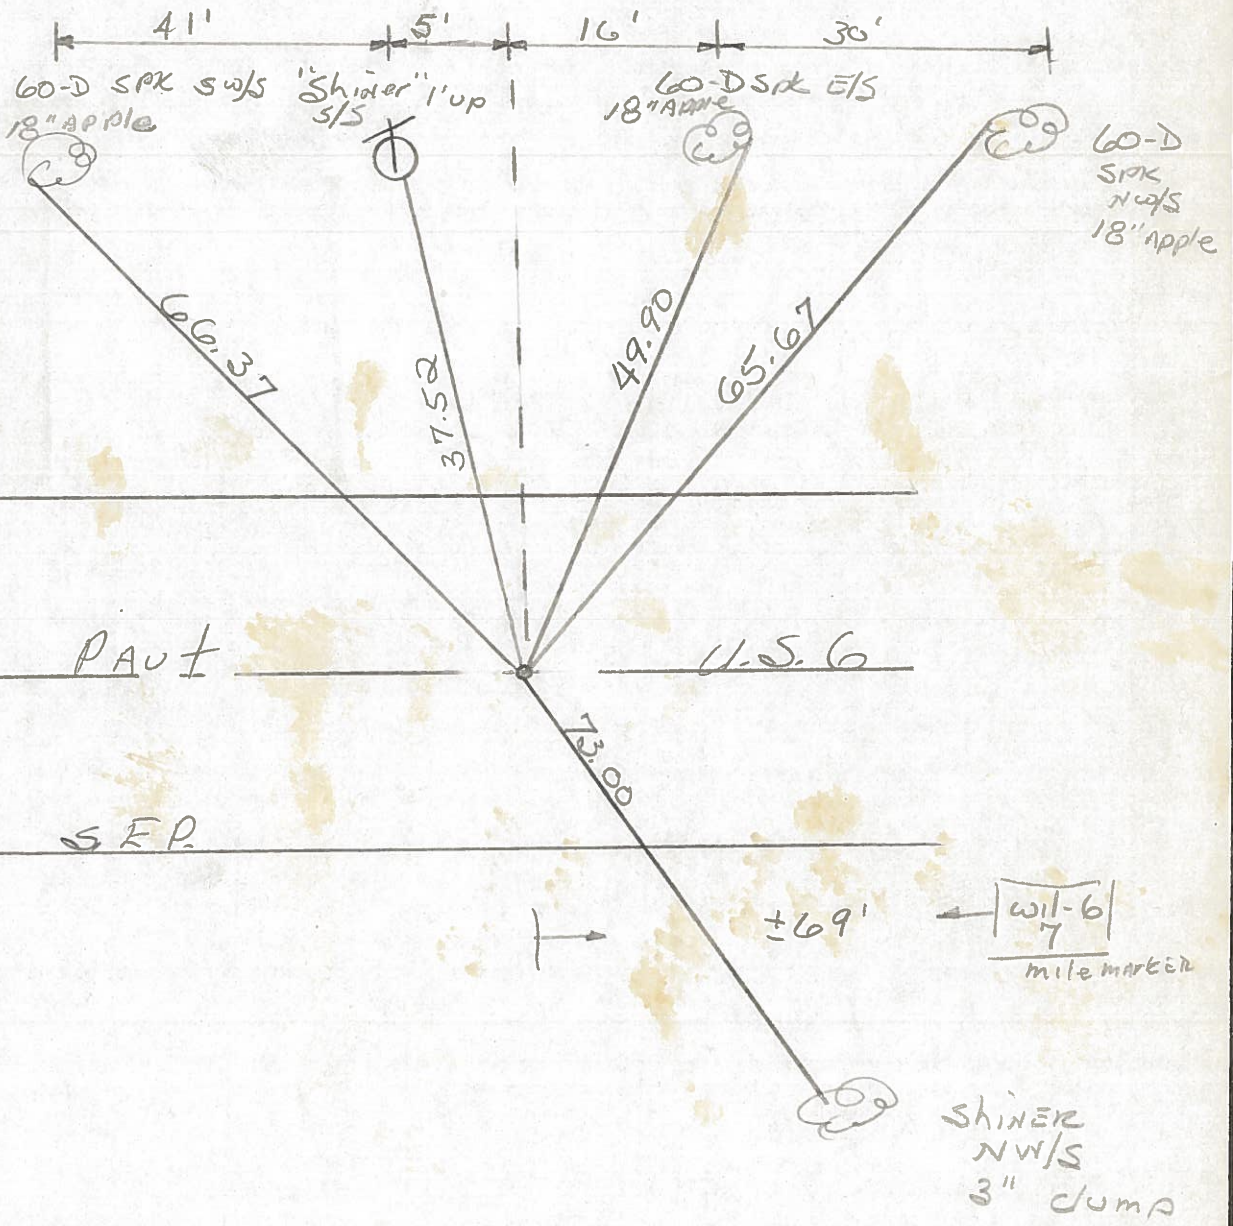 41' 5' 16' 30'
60-D SPK SW/S
18" Apple
"Shiner" 1' up
S/S
60-D Spk E/S
18" Apple
60-D
SPK
NW/S
18" Apple
66.37
37.52
49.90
65.67
PAVt
U.S. 6
73.00
SEP.
±69'
Wil-6
7
mile marker
Shiner
NW/S
3" clump